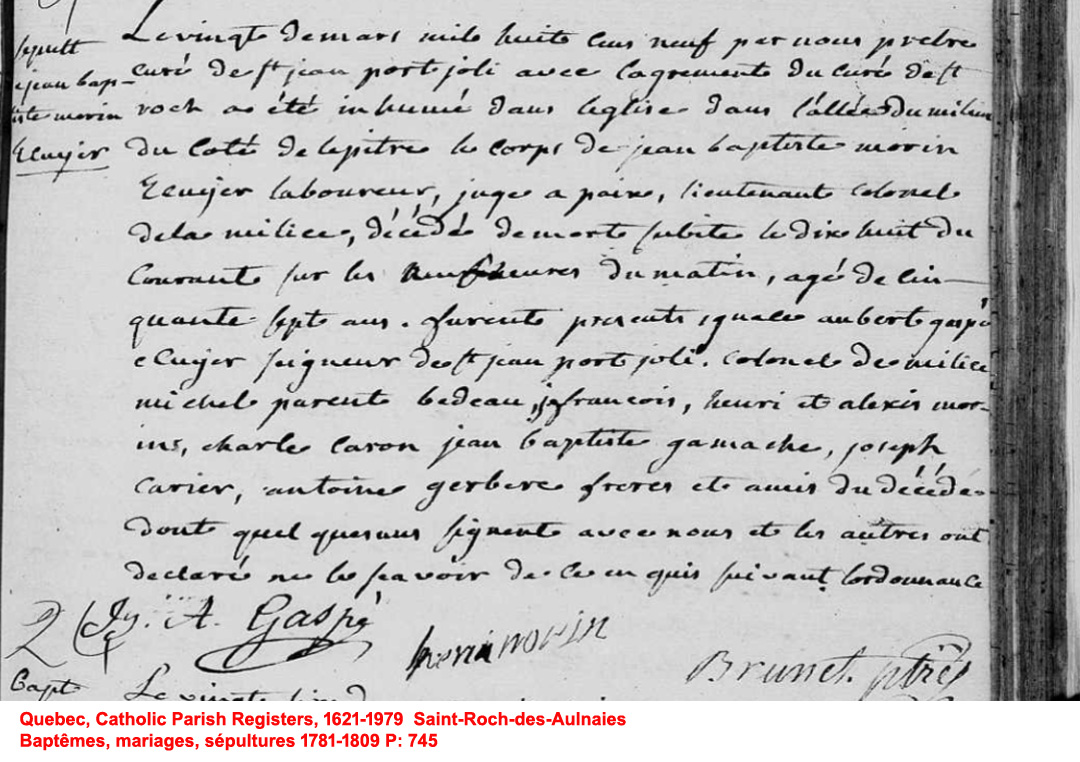 Le vingt de mars mil huite cens neuf par nous prêtre
curé de st jean port joli avec l'agremente du curé de st
roch a été inhumé dans leglise dans l'allée du milieu
du coté de lepitre le corps de jean baptiste morin
Ecuyer laboureur, juge a paix, lieutenant colonel
de la milice, décédé de morte subite le dix huit du
courante sur les neuf heures du matin, agé de cin-
quante sept ans. furente presents ignace aubert gaspé
ecuyer seigneur de st jean port joli. colonel de milice
michel parent bedeau, françois, henri et alexis mor-
ins, charle caron jean baptiste gamache, joseph
carier, antoine gerbere freres et amis du décédé
dont quel quesuns signent avec nous et les autres ont
declaré ne le scavoir de ce enquis suivant lordonnance
sepult
jean bap-
iste morin
Ecuyer
Ig. A. Gaspé
henri morin
Brunet ptre
Bapt
Le vingt
Quebec, Catholic Parish Registers, 1621-1979 Saint-Roch-des-Aulnaies
Baptêmes, mariages, sépultures 1781-1809 P: 745